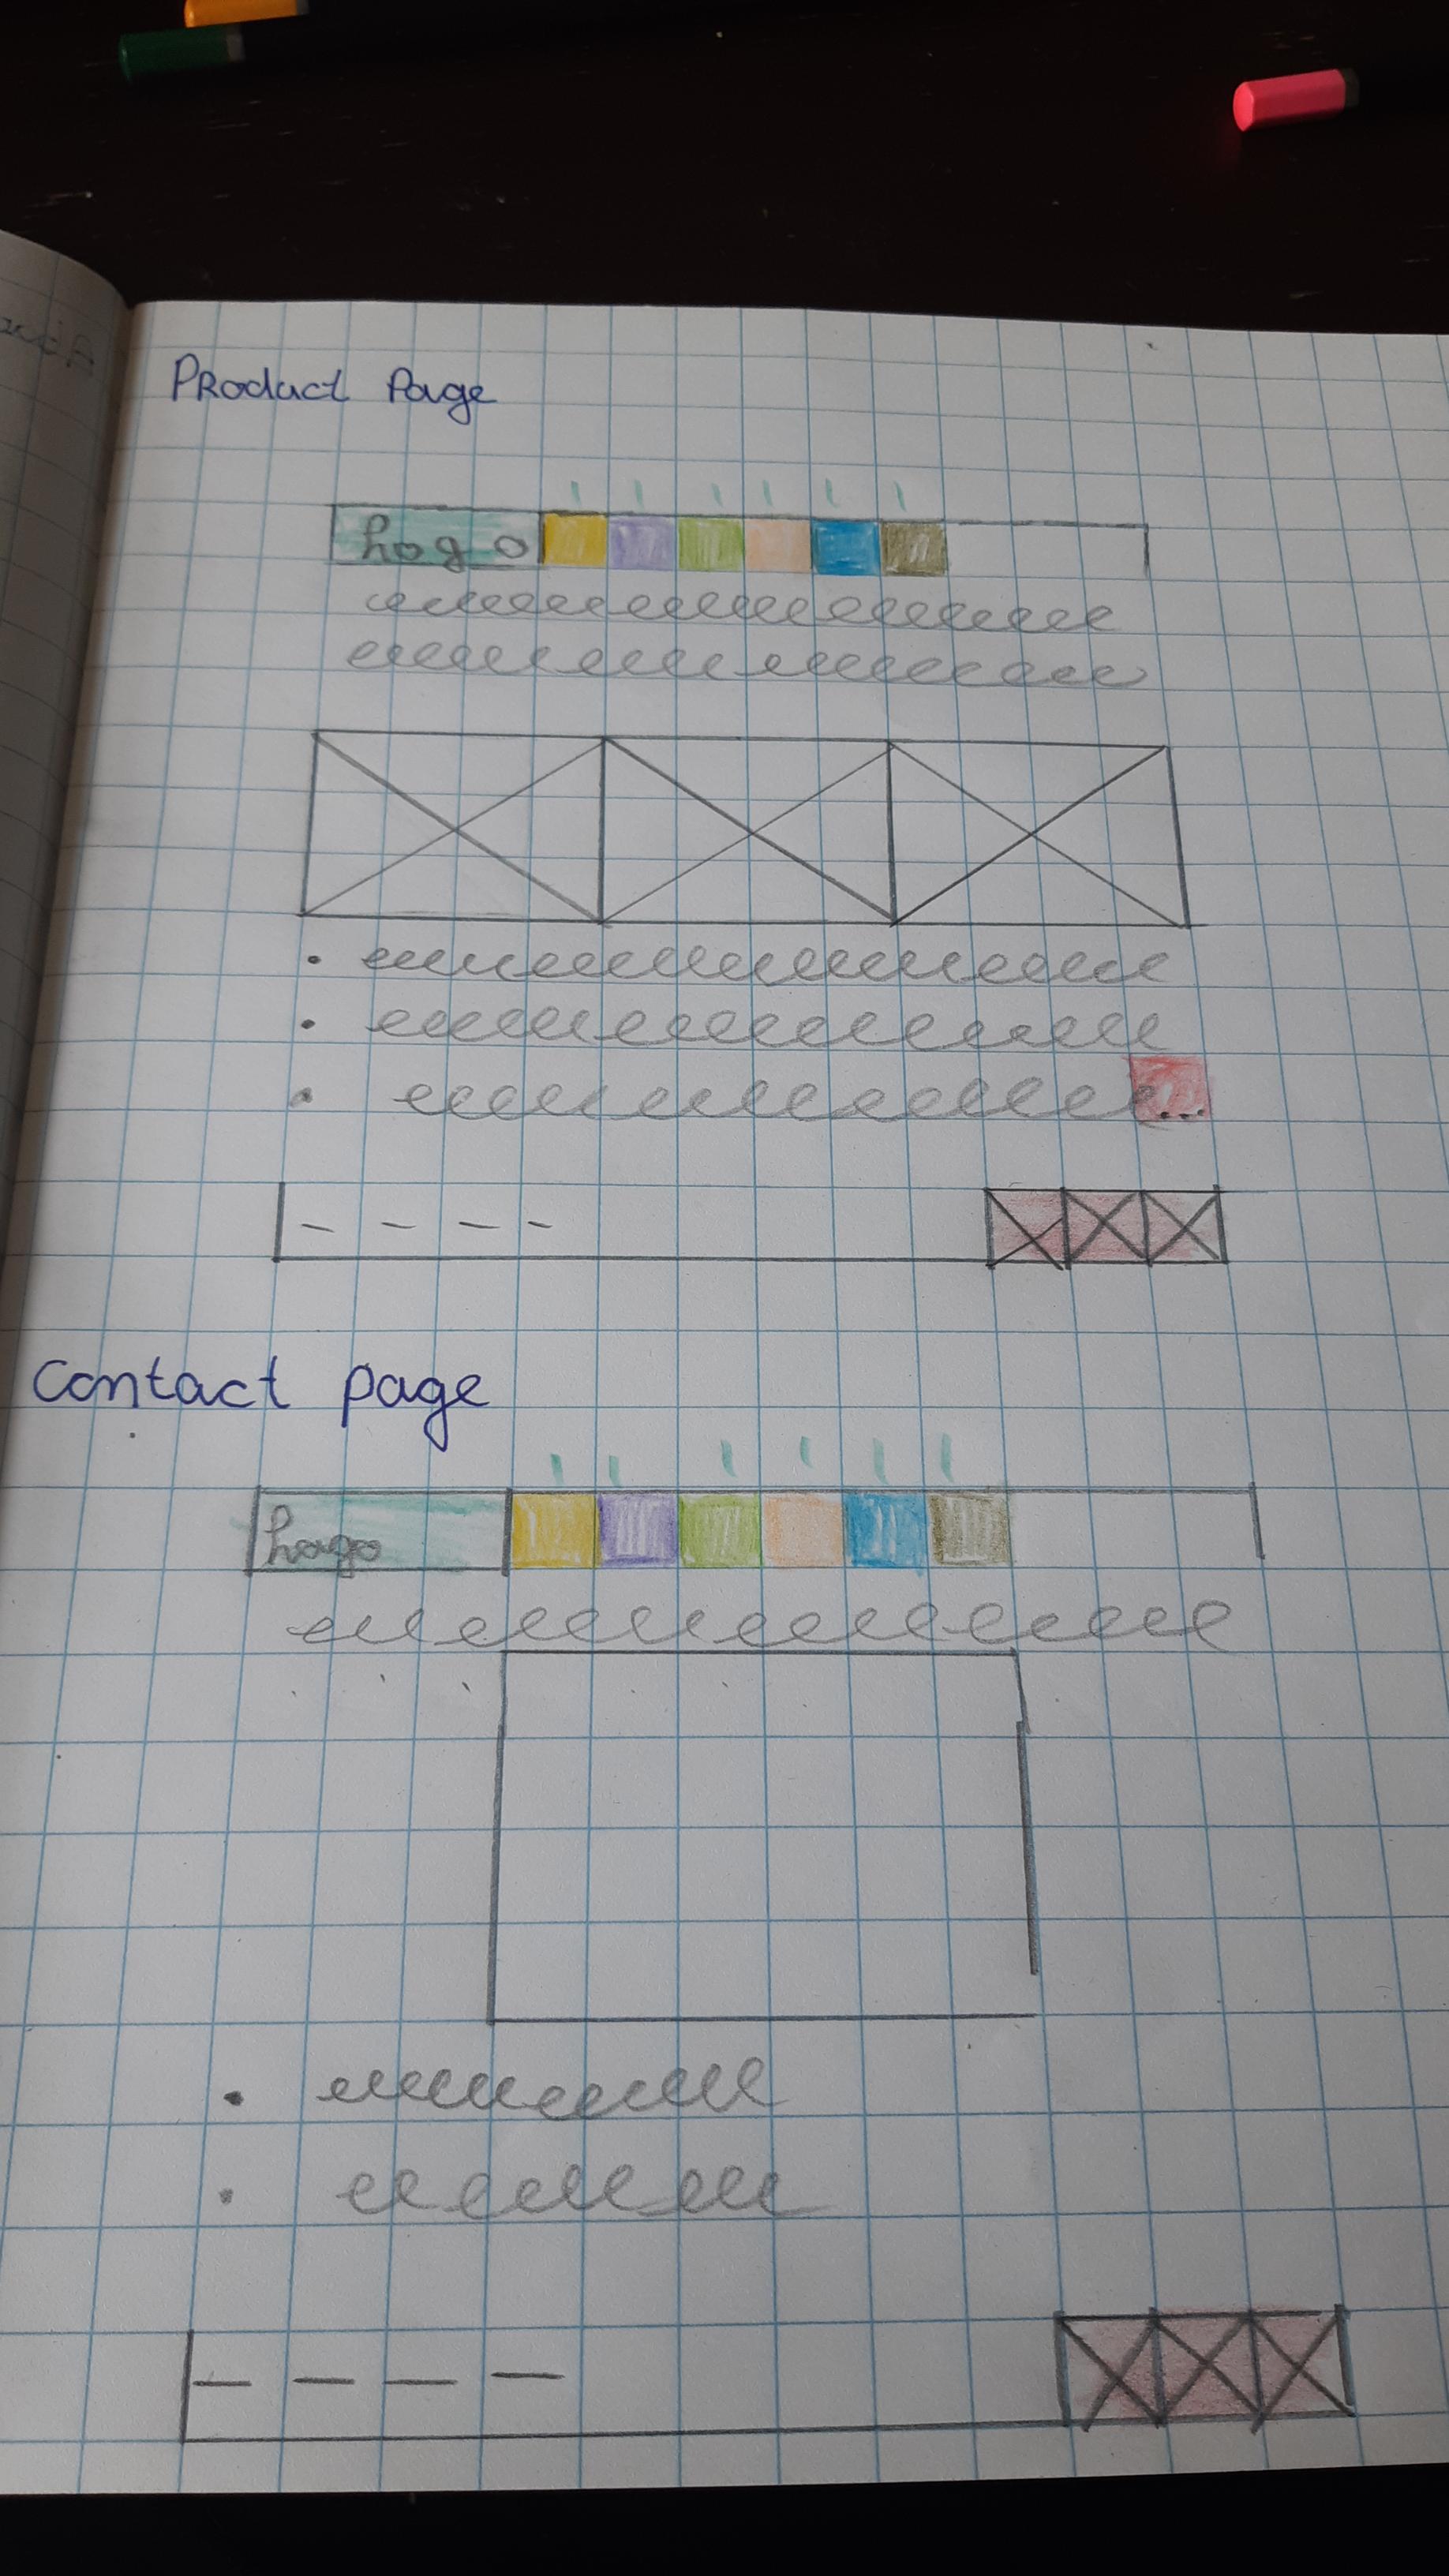 Product Page
Logo
...
Contact page
Logo